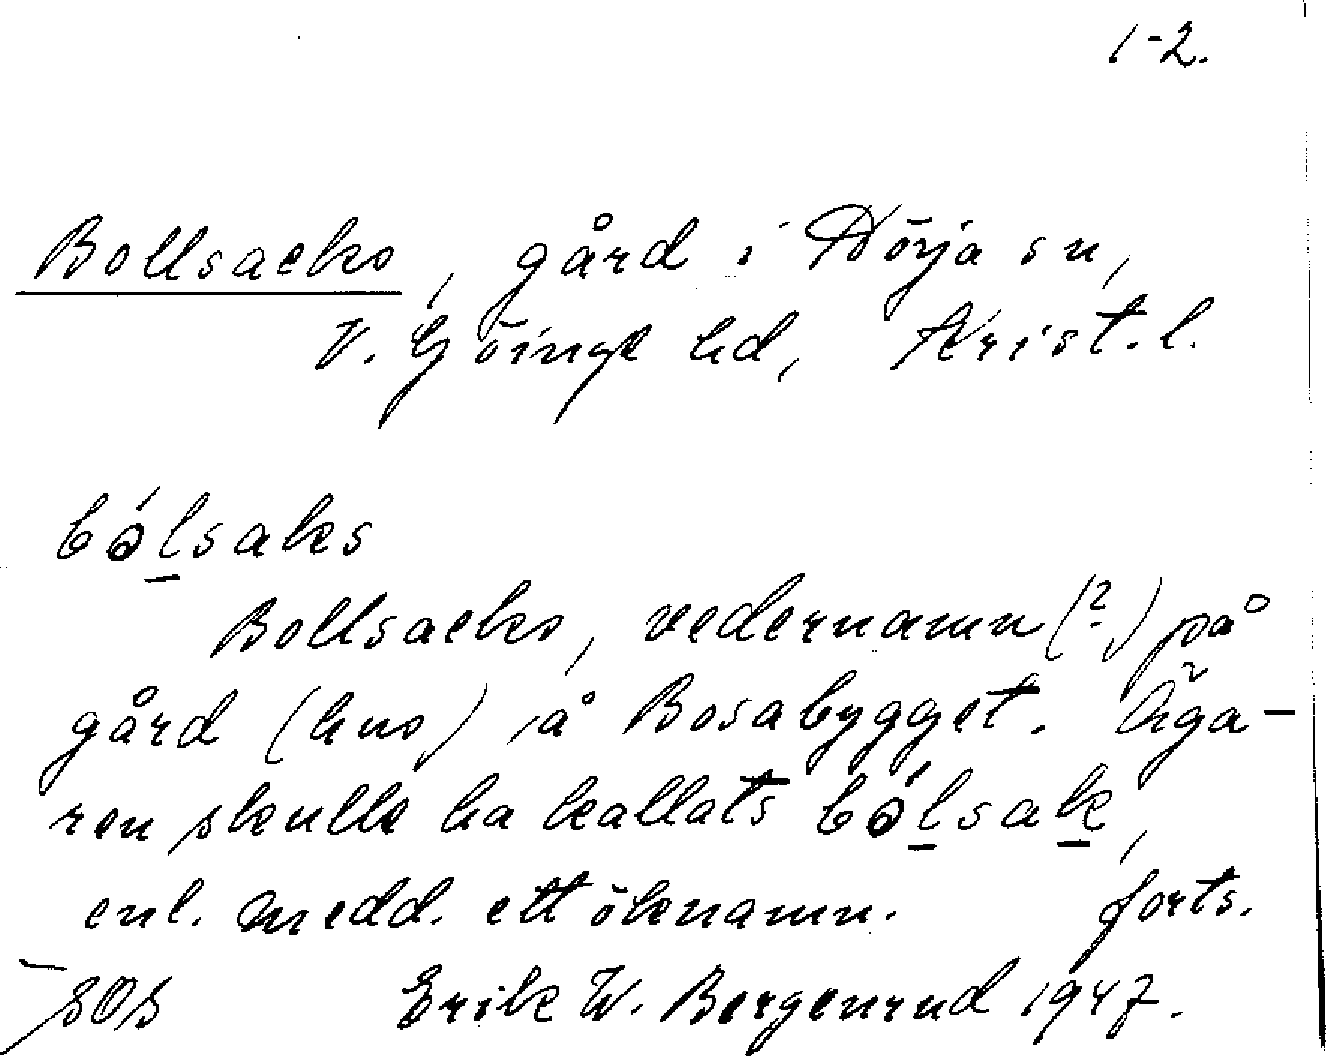 1-2.
Bollsacks, gård i Nörja sn,
V. Göinge hd, Krist. l.
bɔ́lsaks
Bollsacks, vedernamn (?) på
gård (hus) i å Bosabygget. Äga-
ren skulle ha kallats bɔ́lsak,
enl. medd. ett öknamn. forts.
SOS Erik W. Bergenrud 1947.